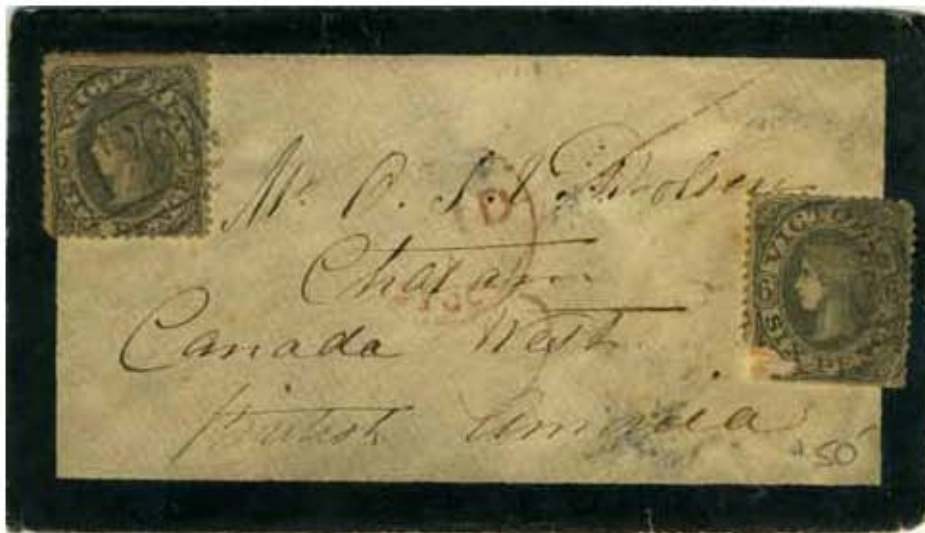 VICTORIA
6
Mr. O. S. &
Chatam
Canada West
British America
VICTORIA
6
SIX PENCE
50